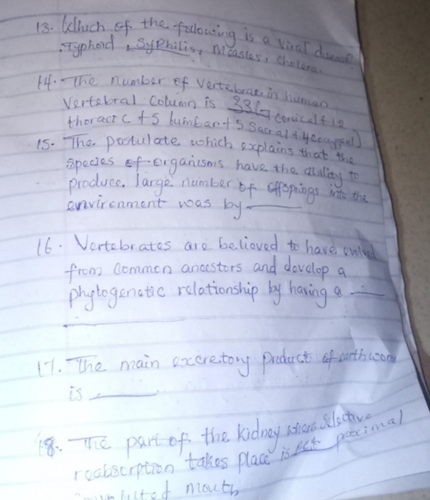 13. Which of the following is a viral disease.
Typhoid, Syphilis, Measles, Cholera.
14. The number of vertebrae in human
Vertebral Column is 33 (7 cervical + 12
thoracic + 5 lumbar + 5 sacral + 4 coccygeal)
15. The postulate which explains that the
species of organisms have the ability to
produce large number of offsprings into the
environment was by
16. Vertebrates are believed to have
from common ancestors and develop a
phylogenetic relationship by having a
17. The main excretory product of earthworm
is
18. The part of the kidney where selective
reabsorption takes place is proximal
mouth